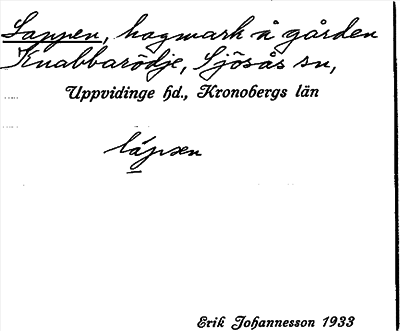 Lappen, hagmark å gården
Knabbarödje, Sjösås sn,
Uppvidinge hd., Kronobergs län
lápsen
Erik Johannesson 1933